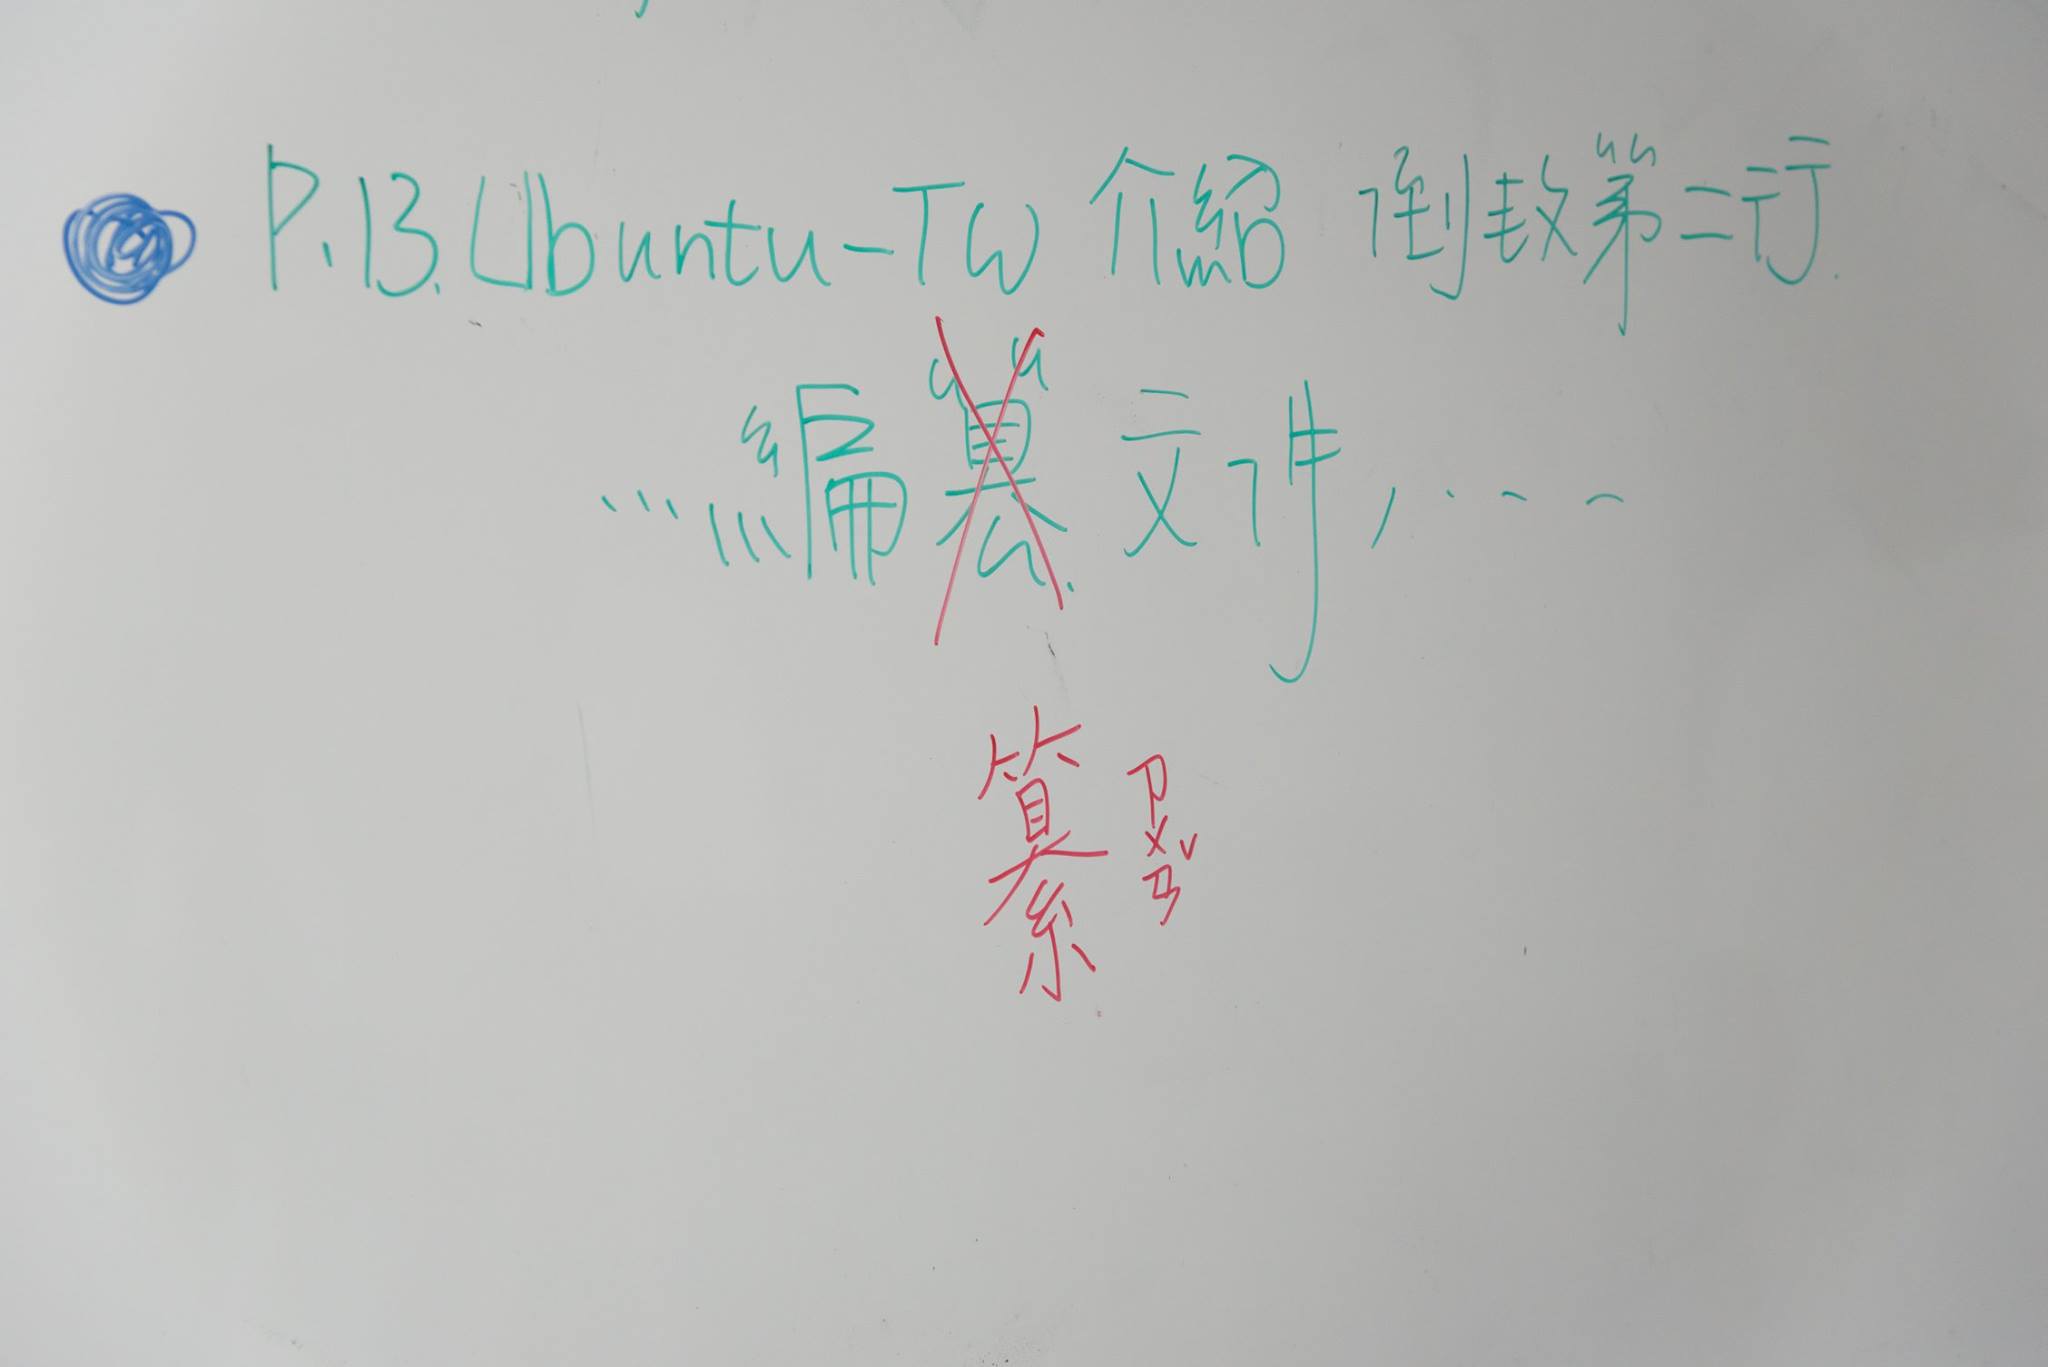 P.13. Ubuntu-TW 介紹 倒數第二行.
...編篡文件,....
纂 ㄗㄨㄢˇ